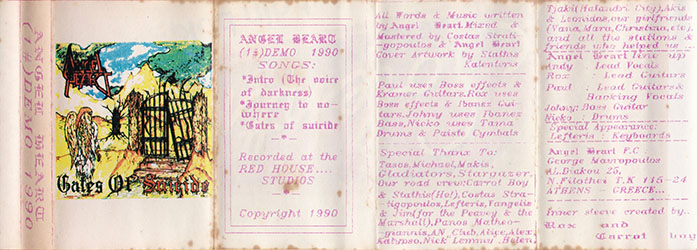 ANGEL HEART
(1$)DEMO 1990
Angel Heart
Gates Of Suicide
ANGEL HEART
(1$)DEMO 1990
SONGS:
*Intro (The voice
of darkness)
*Journey to no-
where
*Gates of suicide
Recorded at the
RED HOUSE....
STUDIOS
Copyright 1990
All Words & Music written
by Angel Heart.Mixed &
Mastered by Costas Strati-
gopoulos & Angel Heart
Cover Artwork by Stathis
Kalenteris
Paul uses Boss effects &
Kramer Guitars.Rox uses
Boss effects & Ibanez Gui-
tars.Johny uses Ibanez
Bass,Nicko uses Tama
Drums & Paiste Cymbals
Special Thanx To:
Tasos,Michael,Makis,
Gladiators,Stargazer,
Our road crew(Carrot Boy
& Stathis(Ho!),Costas Stra-
tigopoulos,Lefteris,Vangelis
& Jim(for the Peavey & the
Marshall),Panos Matheo-
giannis,AN Club,Alice,Alex
Kalypso,Nick Lemnur,Helen,
Tjaki(Halandri City),Akis
& Leonidas,our girlfriends
(Vana,Mara,Christina,etc),
and all the stations &
friends who helped us ...
Angel Heart line up
Andy : Lead Vocal
Rox : Lead Guitars
Paul : Lead Guitars&
Backing Vocals
Johny: Bass Guitar
Nicko : Drums
Special Appearance:
Lefteris : Keyboard
Angel Heart F.C
George Mavropoulos
AL.Diakou 25,
N.Filothei T.K 115-24
ATHENS GREECE...
Inner sleeve created by.
Rox and
Carrot boy